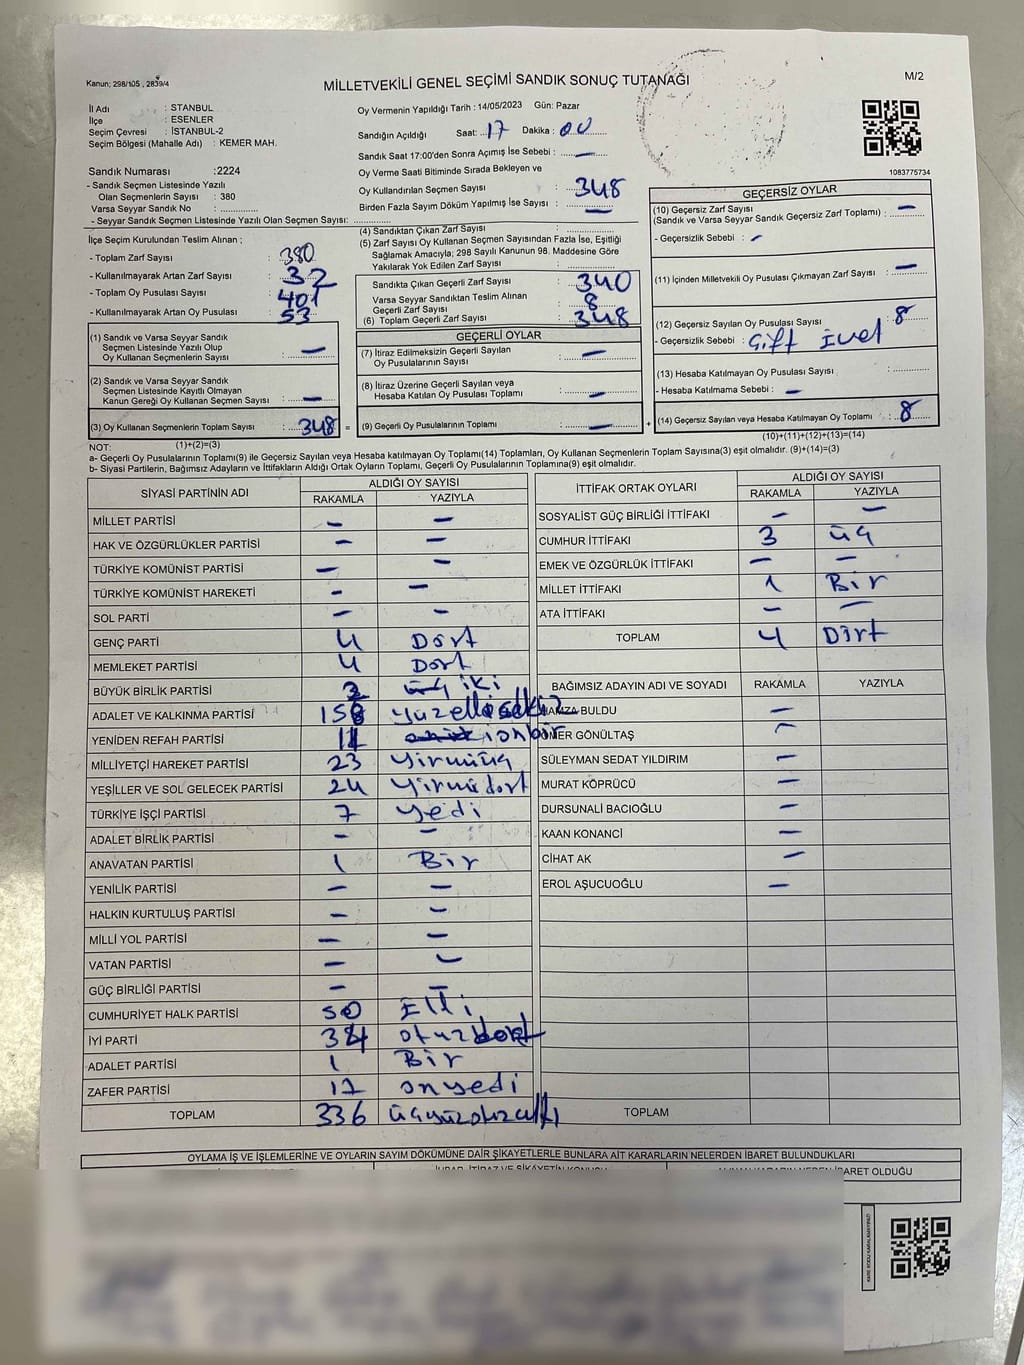 Kanun; 298/105 , 2839/4
MİLLETVEKİLİ GENEL SEÇİMİ SANDIK SONUÇ TUTANAĞI
M/2
İl Adı : STANBUL
İlçe : ESENLER
Seçim Çevresi : İSTANBUL-2
Seçim Bölgesi (Mahalle Adı) : KEMER MAH.
Sandık Numarası :2224
- Sandık Seçmen Listesinde Yazılı
Olan Seçmenlerin Sayısı : 380
Varsa Seyyar Sandık No : ..................
- Seyyar Sandık Seçmen Listesinde Yazılı Olan Seçmen Sayısı: ............
Oy Vermenin Yapıldığı Tarih : 14/05/2023 Gün: Pazar
Sandığın Açıldığı Saat: 17 Dakika : 00
Sandık Saat 17:00'den Sonra Açımış İse Sebebi : —
Oy Verme Saati Bitiminde Sırada Bekleyen ve
Oy Kullandırılan Seçmen Sayısı : 348
Birden Fazla Sayım Döküm Yapılmış İse Sayısı : —
1083775734
İlçe Seçim Kurulundan Teslim Alınan ;
- Toplam Zarf Sayısı : 380
- Kullanılmayarak Artan Zarf Sayısı : 32
- Toplam Oy Pusulası Sayısı : 401
- Kullanılmayarak Artan Oy Pusulası : 53
(1) Sandık ve Varsa Seyyar Sandık
Seçmen Listesinde Yazılı Olup
Oy Kullanan Seçmenlerin Sayısı : —
(2) Sandık ve Varsa Seyyar Sandık
Seçmen Listesinde Kayıtlı Olmayan
Kanun Gereği Oy Kullanan Seçmen Sayısı : —
(3) Oy Kullanan Seçmenlerin Toplam Sayısı : 348 =
(4) Sandıktan Çıkan Zarf Sayısı :
(5) Zarf Sayısı Oy Kullanan Seçmen Sayısından Fazla İse, Eşitliği
Sağlamak Amacıyla; 298 Sayılı Kanunun 98. Maddesine Göre
Yakılarak Yok Edilen Zarf Sayısı :
Sandıkta Çıkan Geçerli Zarf Sayısı : 340
Varsa Seyyar Sandıktan Teslim Alınan
Geçerli Zarf Sayısı : 8
(6) Toplam Geçerli Zarf Sayısı : 348
GEÇERLİ OYLAR
(7) İtiraz Edilmeksizin Geçerli Sayılan
Oy Pusulalarının Sayısı : —
(8) İtiraz Üzerine Geçerli Sayılan veya
Hesaba Katılan Oy Pusulası Toplamı : —
(9) Geçerli Oy Pusulalarının Toplamı : — +
GEÇERSİZ OYLAR
(10) Geçersiz Zarf Sayısı
(Sandık ve Varsa Seyyar Sandık Geçersiz Zarf Toplamı) : —
- Geçersizlik Sebebi : —
(11) İçinden Milletvekili Oy Pusulası Çıkmayan Zarf Sayısı : —
(12) Geçersiz Sayılan Oy Pusulası Sayısı : 8
- Geçersizlik Sebebi :
(13) Hesaba Katılmayan Oy Pusulası Sayısı :
- Hesaba Katılmama Sebebi : —
(14) Geçersiz Sayılan veya Hesaba Katılmayan Oy Toplamı : 8
NOT: (1)+(2)=(3)
(10)+(11)+(12)+(13)=(14)
a- Geçerli Oy Pusulalarının Toplamı(9) ile Geçersiz Sayılan veya Hesaba katılmayan Oy Toplamı(14) Toplamları, Oy Kullanan Seçmenlerin Toplam Sayısına(3) eşit olmalıdır. (9)+(14)=(3)
b- Siyasi Partilerin, Bağımsız Adayların ve İttifakların Aldığı Ortak Oyların Toplamı, Geçerli Oy Pusulalarının Toplamına(9) eşit olmalıdır.
SİYASİ PARTİNİN ADI ALDIĞI OY SAYISI
RAKAMLA YAZIYLA
MİLLET PARTİSİ — —
HAK VE ÖZGÜRLÜKLER PARTİSİ — —
TÜRKİYE KOMÜNİST PARTİSİ — —
TÜRKİYE KOMÜNİST HAREKETİ — —
SOL PARTİ — —
GENÇ PARTİ 4 Dört
MEMLEKET PARTİSİ 4 Dört
BÜYÜK BİRLİK PARTİSİ 2 iki
ADALET VE KALKINMA PARTİSİ 158 yüzellisekiz
YENİDEN REFAH PARTİSİ 11 onbir
MİLLİYETÇİ HAREKET PARTİSİ 23 Yirmiüç
YEŞİLLER VE SOL GELECEK PARTİSİ 24 Yirmidört
TÜRKİYE İŞÇİ PARTİSİ 7 yedi
ADALET BİRLİK PARTİSİ — —
ANAVATAN PARTİSİ 1 Bir
YENİLİK PARTİSİ — —
HALKIN KURTULUŞ PARTİSİ — —
MİLLİ YOL PARTİSİ — —
VATAN PARTİSİ — —
GÜÇ BİRLİĞİ PARTİSİ — —
CUMHURİYET HALK PARTİSİ 50 Elli
İYİ PARTİ 34 otuzdört
ADALET PARTİSİ 1 Bir
ZAFER PARTİSİ 17 onyedi
TOPLAM 336 üçyüzotuzaltı
İTTİFAK ORTAK OYLARI ALDIĞI OY SAYISI
RAKAMLA YAZIYLA
SOSYALİST GÜÇ BİRLİĞİ İTTİFAKI — —
CUMHUR İTTİFAKI 3 üç
EMEK VE ÖZGÜRLÜK İTTİFAKI — —
MİLLET İTTİFAKI 1 Bir
ATA İTTİFAKI — —
TOPLAM 4 Dört
BAĞIMSIZ ADAYIN ADI VE SOYADI RAKAMLA YAZIYLA
HAMZA BULDU —
ÖMER GÖNÜLTAŞ —
SÜLEYMAN SEDAT YILDIRIM —
MURAT KÖPRÜCÜ —
DURSUNALİ BACIOĞLU —
KAAN KONANCİ —
CİHAT AK —
EROL AŞUCUOĞLU —
TOPLAM
OYLAMA İŞ VE İŞLEMLERİNE VE OYLARIN SAYIM DÖKÜMÜNE DAİR ŞİKAYETLERLE BUNLARA AİT KARARLARIN NELERDEN İBARET BULUNDUKLARI
İBARET OLDUĞU